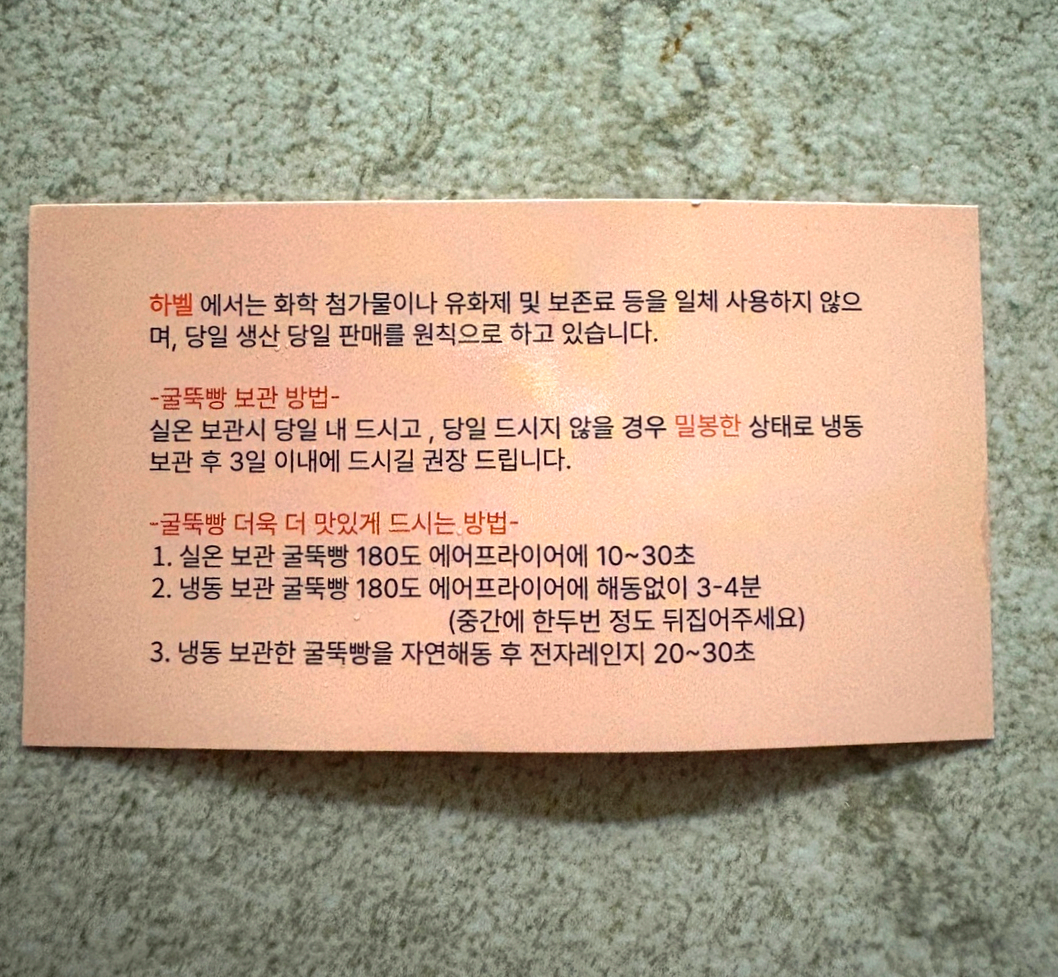 하벨 에서는 화학 첨가물이나 유화제 및 보존료 등을 일체 사용하지 않으
며, 당일 생산 당일 판매를 원칙으로 하고 있습니다.
-굴뚝빵 보관 방법-
실온 보관시 당일 내 드시고 , 당일 드시지 않을 경우 밀봉한 상태로 냉동
보관 후 3일 이내에 드시길 권장 드립니다.
-굴뚝빵 더욱 더 맛있게 드시는 방법-
1. 실온 보관 굴뚝빵 180도 에어프라이어에 10~30초
2. 냉동 보관 굴뚝빵 180도 에어프라이어에 해동없이 3-4분
(중간에 한두번 정도 뒤집어주세요)
3. 냉동 보관한 굴뚝빵을 자연해동 후 전자레인지 20~30초